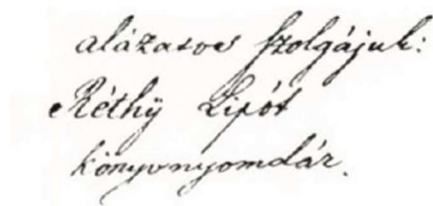 alázatos szolgájuk:
Réthÿ Lipót
könyvnyomdár.